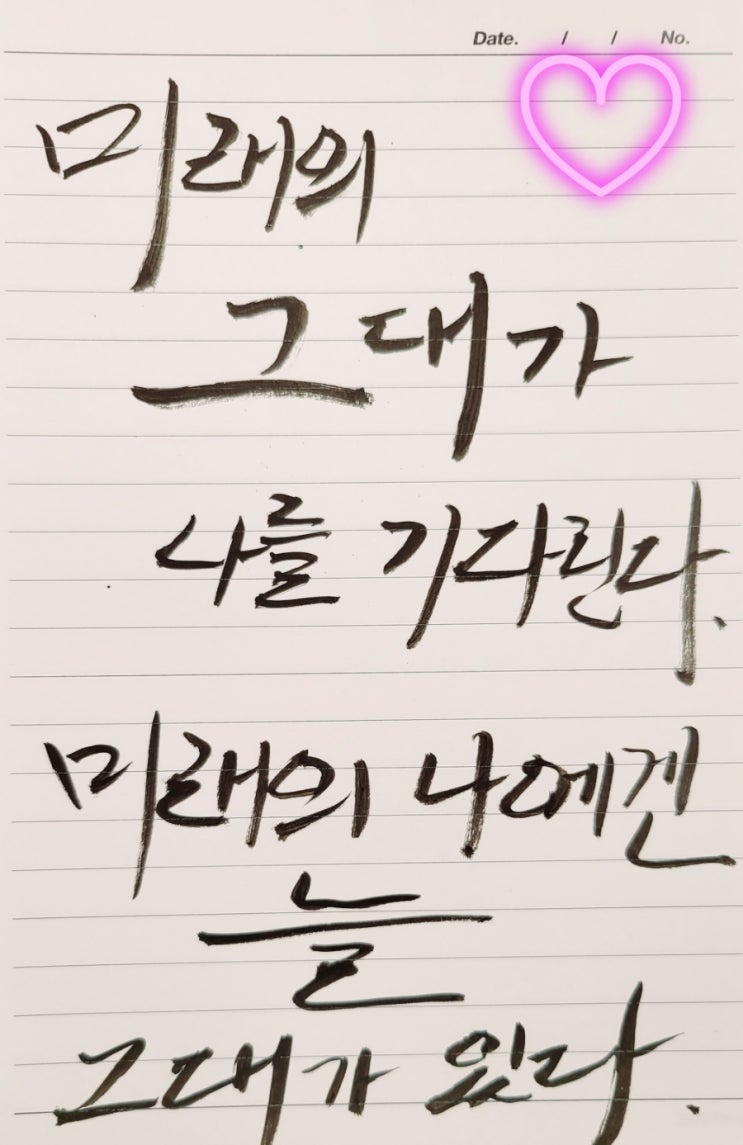 Date. / / No.
미래의
그대가
나를 기다린다.
미래의 나에겐
늘
그대가 있다.